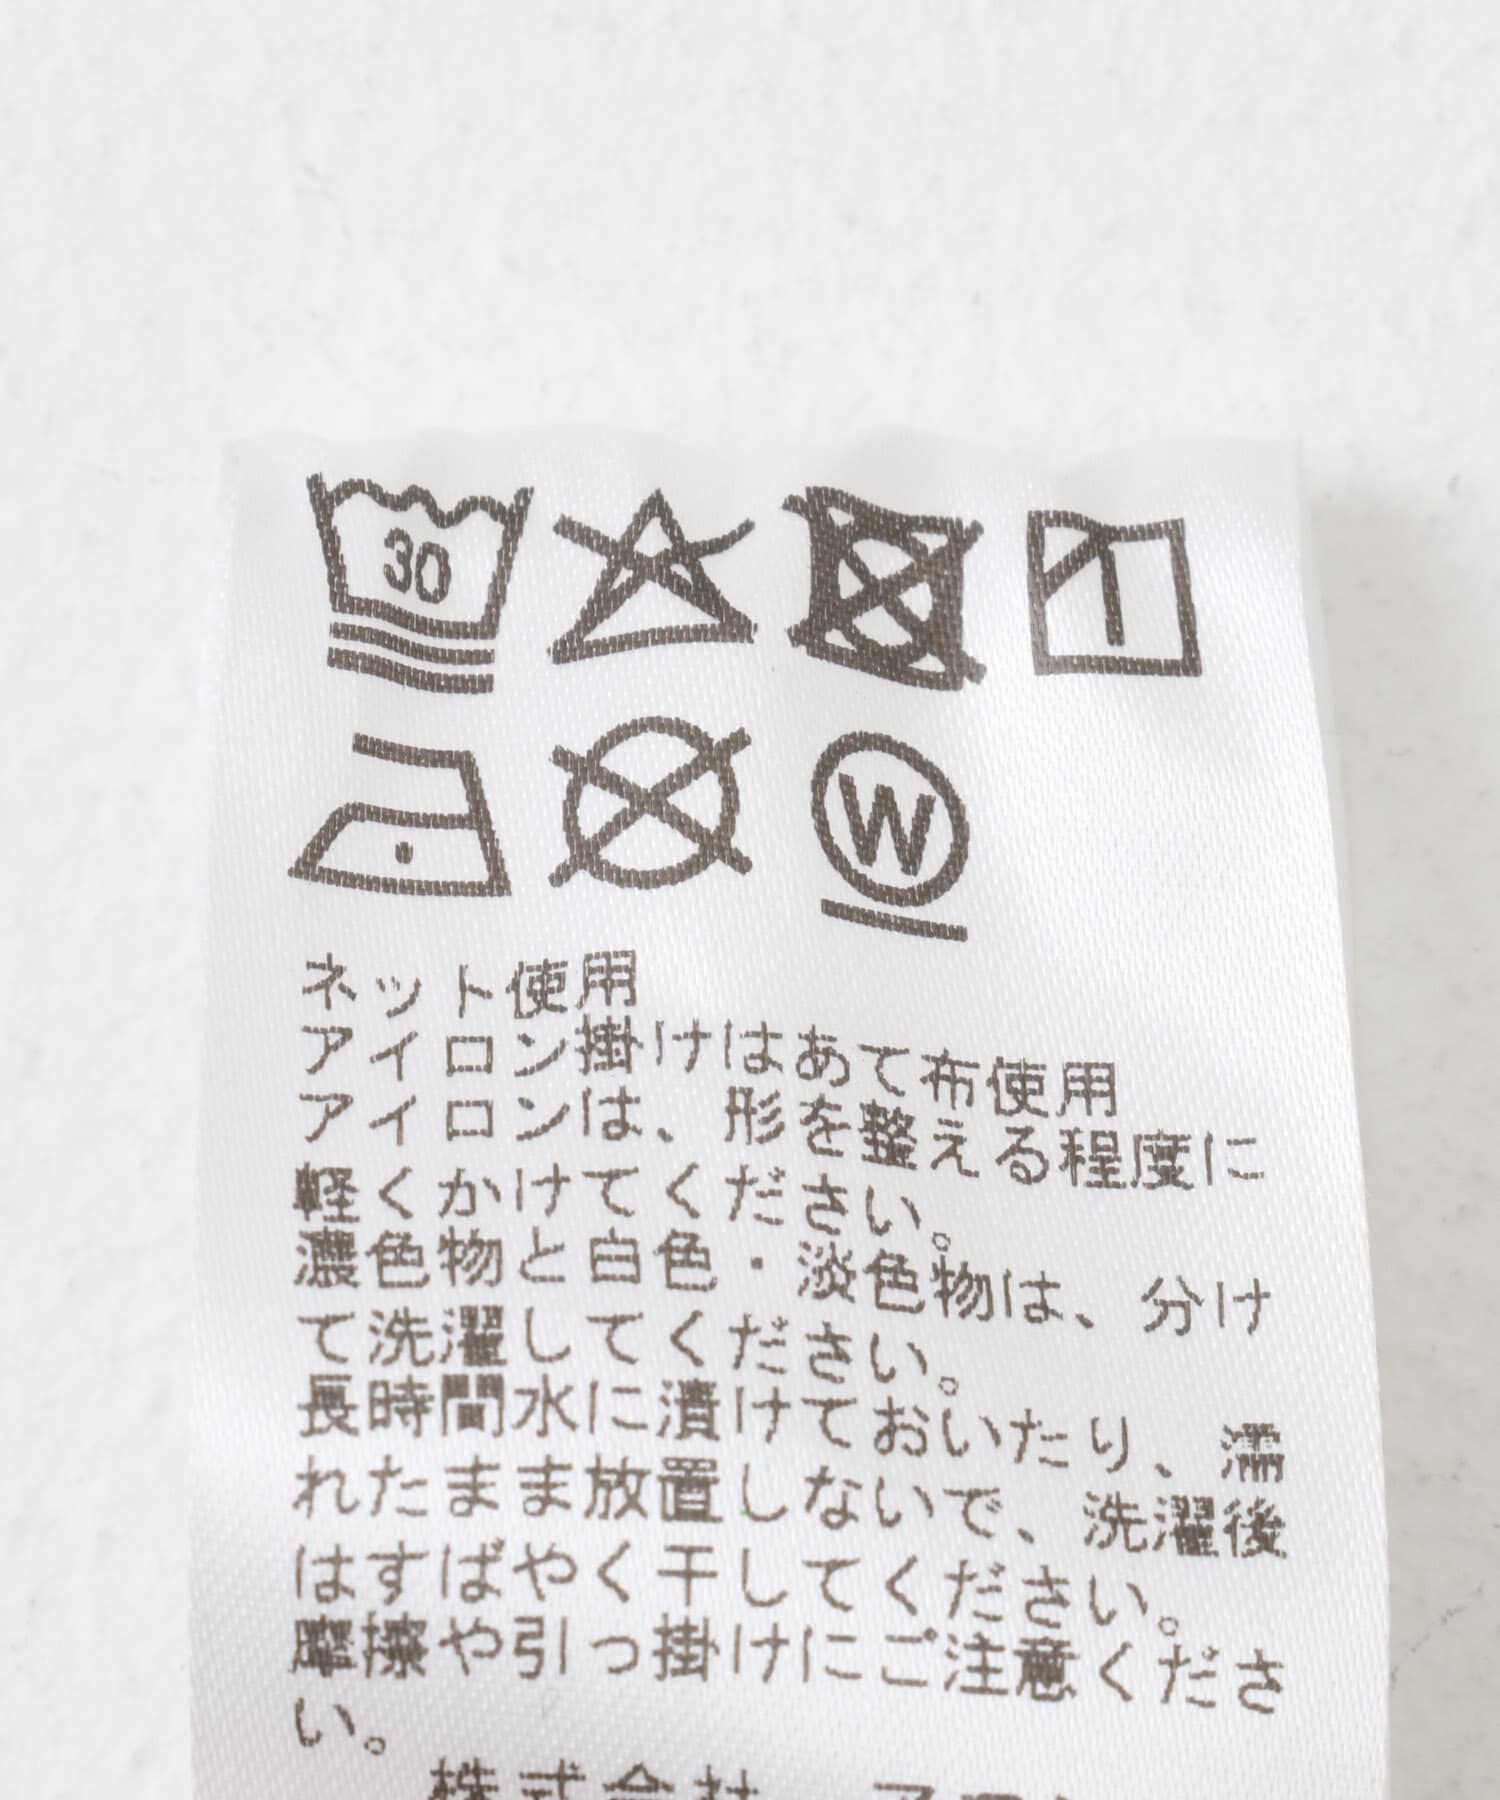 30
W
ネット使用
アイロン掛けはあて布使用
アイロンは、形を整える程度に
軽くかけてください。
濃色物と白色・淡色物は、分け
て洗濯してください。
長時間水に漬けておいたり、濡
れたまま放置しないで、洗濯後
はすばやく干してください。
摩擦や引っ掛けにご注意くださ
い。
株式会社